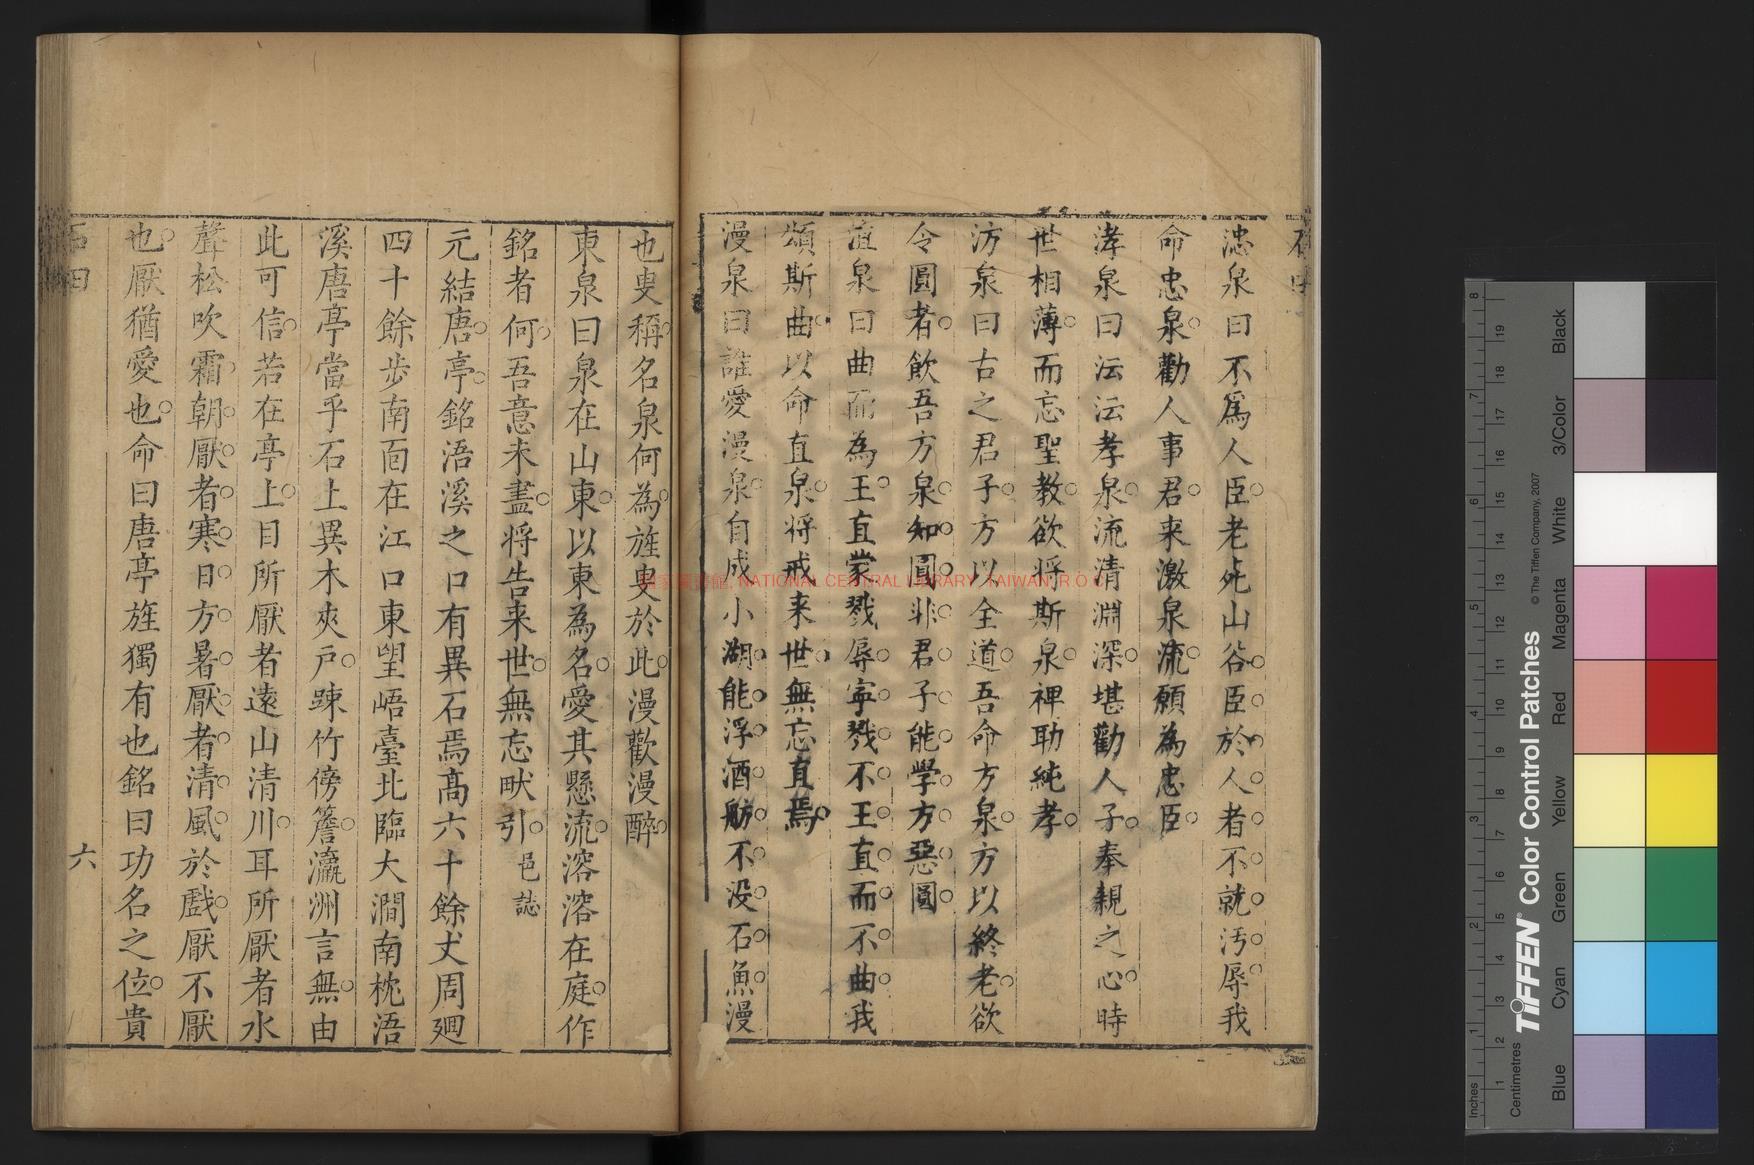 㴝泉曰不爲人臣老死山谷臣於人者不就污辱我
命忠泉勸人事君来激泉流願為忠臣
涍泉曰沄沄孝泉流清淵深堪勸人子奉親之心時
世相薄而忘聖教欲将斯泉裨助純孝
汸泉曰古之君子方以全道吾命方泉方以終老欲
令圓者飲吾方泉知圓非君子能學方惡圓
泉曰曲而為王直蒙戮辱寧戮不王直而不曲我
頌斯曲以命直泉将戒来世無忘直焉
漫泉曰誰愛漫泉自成小湖能浮酒舫不没石魚漫
也叟稱名泉何為旌叟於此漫歡漫醉
東泉曰泉在山東以東為名愛其懸流溶溶在庭作
銘者何吾意未盡将告来世無忘畎引邑誌
元結唐亭銘浯溪之口有異石焉髙六十餘丈周廻
四十餘步南面在江口東望峿臺北臨大澗南枕浯
溪唐亭當乎石上異木夾戶踈竹傍簷瀛洲言無由
此可信若在亭上目所厭者遠山清川耳所厭者水
聲松吹霜朝厭者寒日方暑厭者清風於戲厭不厭
也厭猶愛也命曰唐亭旌獨有也銘曰功名之位貴
六
國家圖書館, NATIONAL CENTRAL LIBRARY, TAIWAN, R.O.C
TIFFEN® Color Control Patches
© The Tiffen Company, 2007
Centimetres
Inches
Blue
Cyan
Green
Yellow
Red
Magenta
White
3/Color
Black